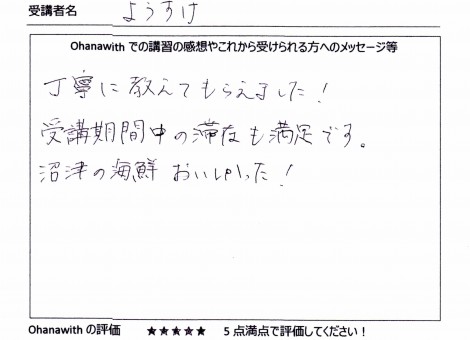 受講者名 ようすけ
Ohanawith での講習の感想やこれから受けられる方へのメッセージ等
丁寧に教えてもらえました！
受講期間中の滞在も満足です。
沼津の海鮮 おいしかった！
Ohanawith の評価 ★★★★★ 5点満点で評価してください！